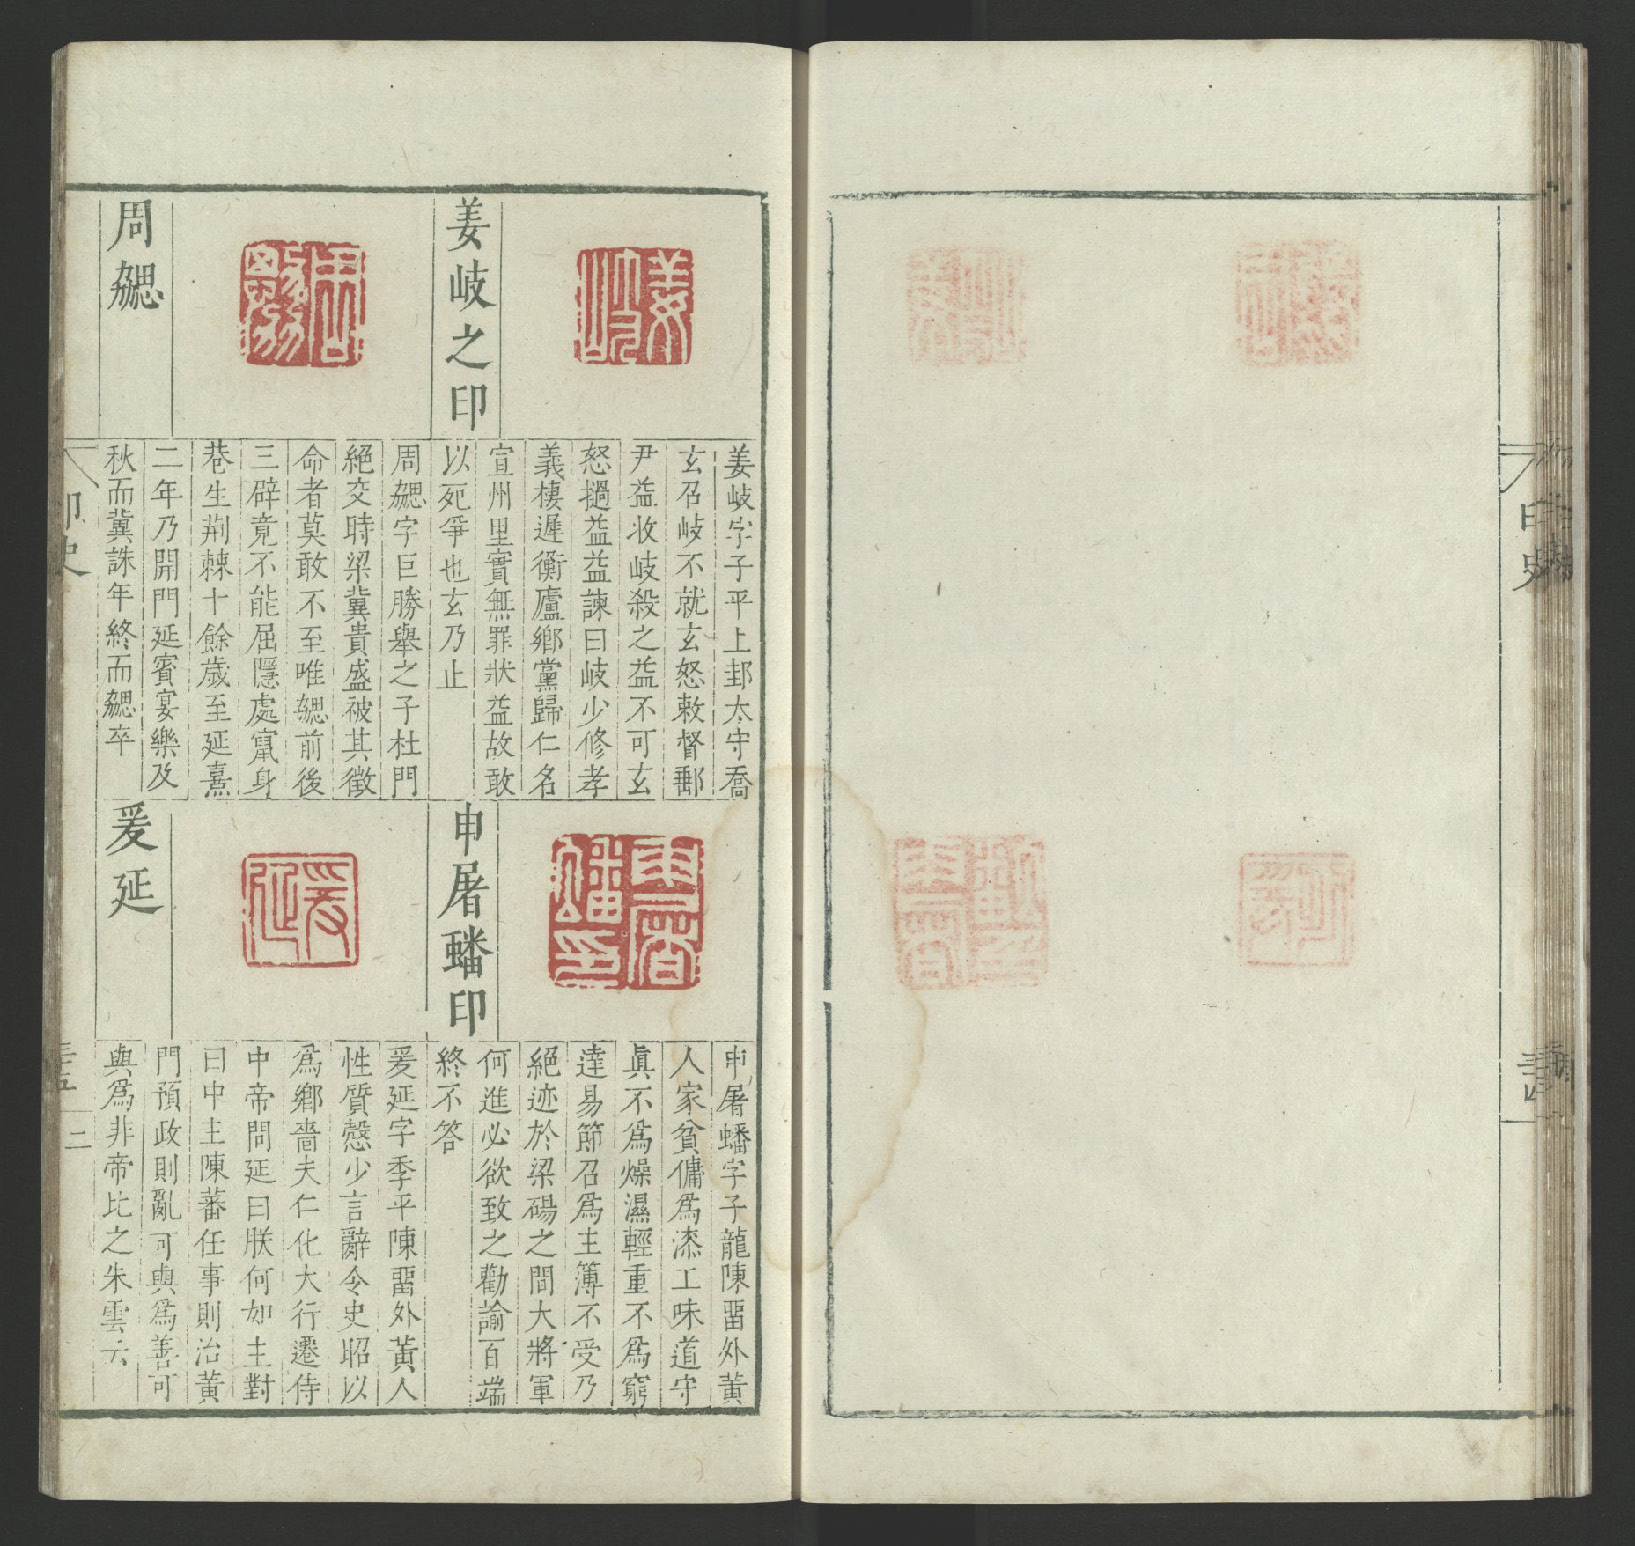 姜岐之印
周勰
姜岐字子平上邽太守喬
玄召岐不就玄怒敕督郵
尹益收岐殺之益不可玄
怒撾益益諫曰岐少修孝
義棲遲衡廬鄉黨歸仁名
宣州里實無罪狀益故敢
以死爭也玄乃止
周勰字巨勝舉之子杜門
絕交時梁冀貴盛被其徵
命者莫敢不至唯勰前後
三辟竟不能屈隱處竄身
巷生荆棘十餘歲至延熹
二年乃開門延賓宴樂及
秋而冀誅年終而勰卒
申屠蟠印
爰延
申屠蟠字子龍陳畱外黃
人家貧傭爲漆工味道守
眞不爲燥濕輕重不爲窮
達易節召爲主簿不受乃
絕迹於梁碭之間大將軍
何進必欲致之勸諭百端
終不答
爰延字季平陳畱外黃人
性質慤少言辭令史昭以
爲鄉嗇夫仁化大行遷侍
中帝問延曰朕何如主對
曰中主陳蕃任事則治黃
門預政則亂可與爲善可
與爲非帝比之朱雲云
印史
三五
印史
三四